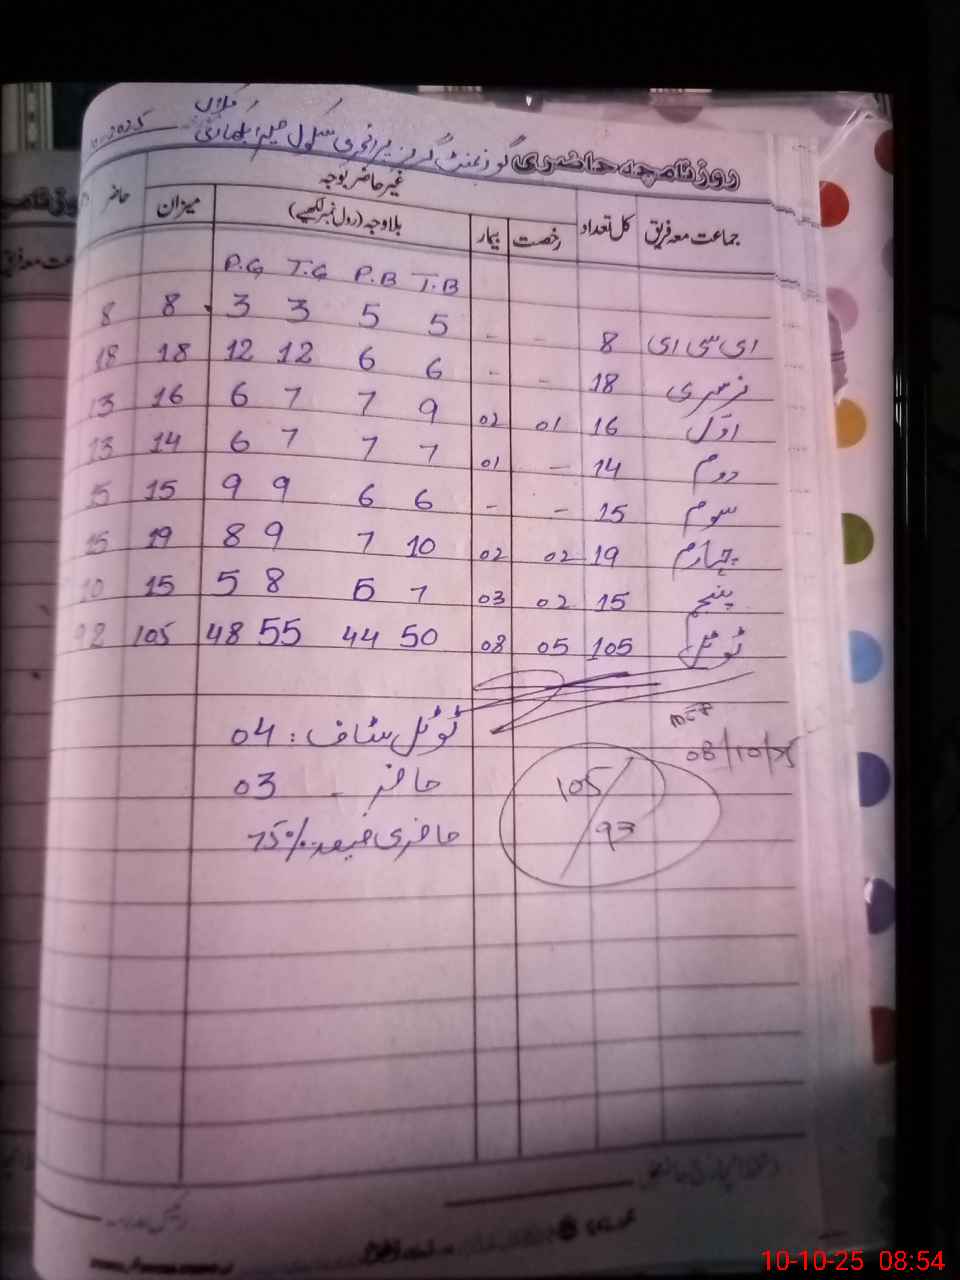 2025
روزنامچہ حاضری گورنمنٹ گرلز پرائمری سکول
غیر حاضر بوجہ
جماعت معہ فریق کل تعداد رخصت بیمار بلاوجہ (رول نمبر لکھیے) میزان حاضر
P.G T.G P.B T.B
ای سی ای 8 - - 5 5 3 3 8 8
نرسری 18 - - 6 6 12 12 18 18
اوّل 16 01 02 9 7 7 6 16 13
دوم 14 - 01 7 7 7 6 14 13
سوم 15 - - 6 6 9 9 15 15
چہارم 19 02 02 10 7 9 8 19 15
پنجم 15 02 03 7 5 8 5 15 10
ٹوٹل 105 05 08 50 44 55 48 105 92
ٹوٹل سٹاف : 04
حاضر - 03
حاضری فیصد 75%
08/10/25
105/93
10-10-25 08:54